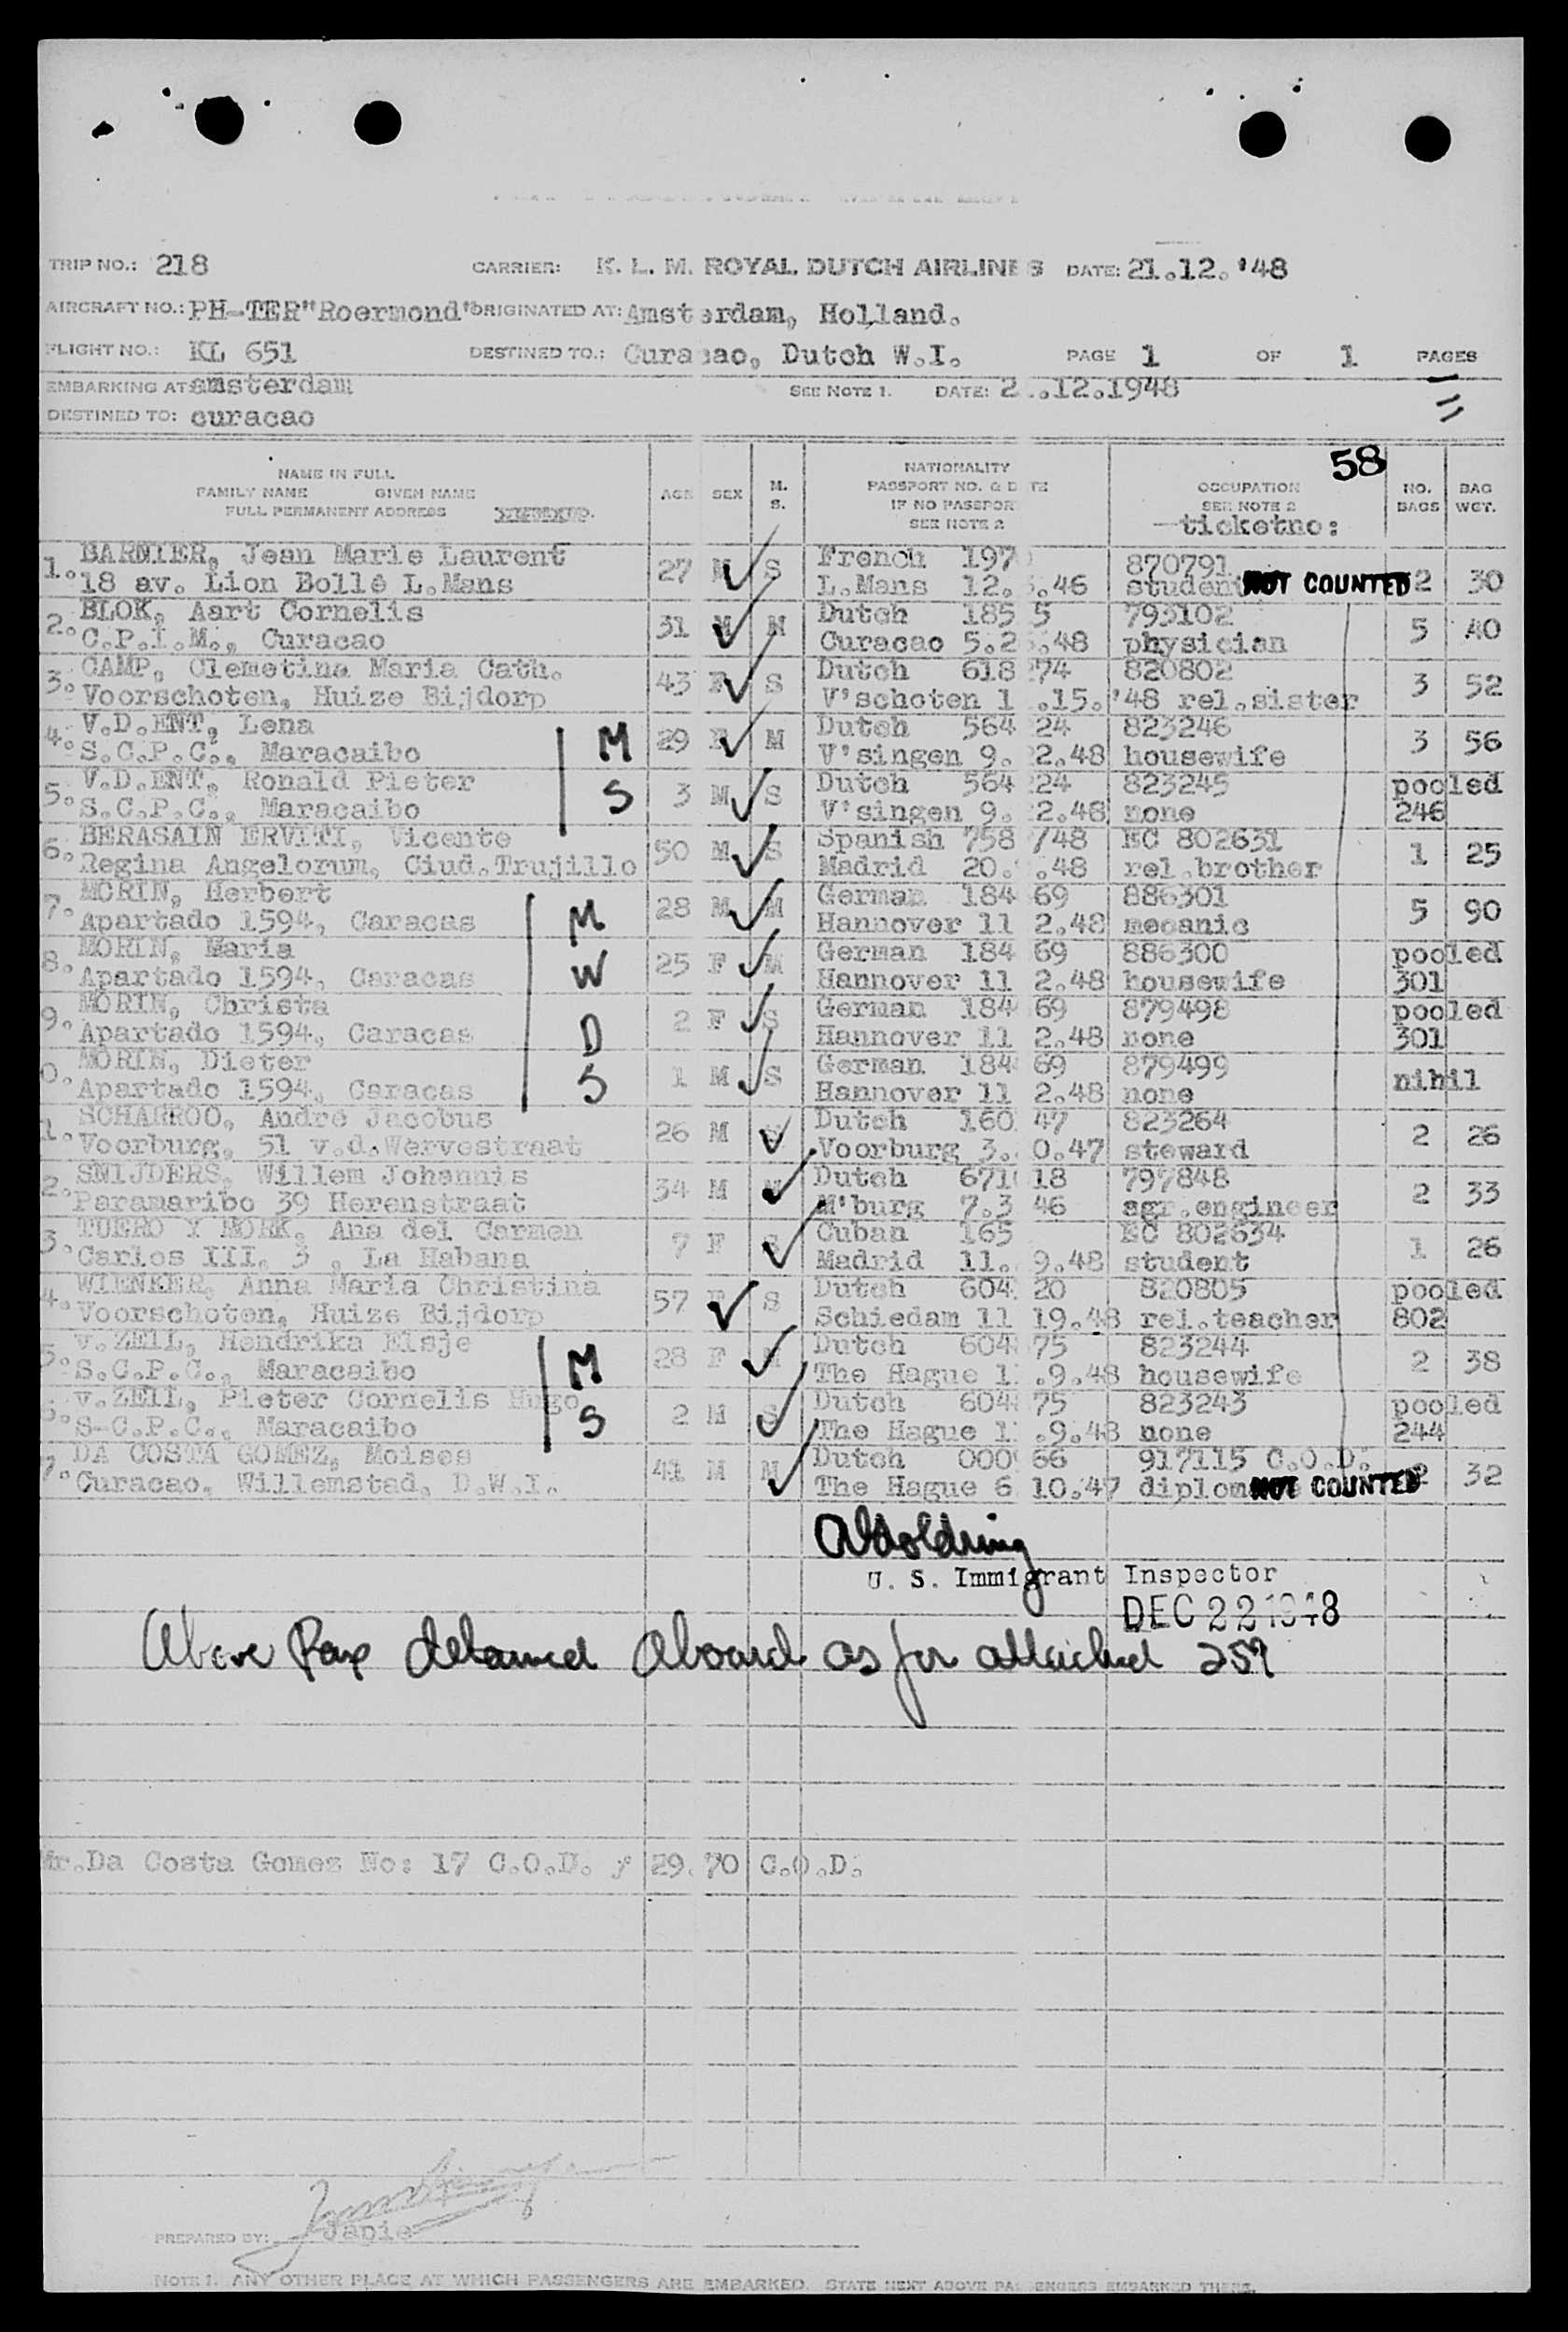 TRIP NO.: 218 CARRIER: K. L. M. ROYAL DUTCH AIRLINES DATE: 21.12.'48
AIRCRAFT NO.: PH-TER"Roermond" ORIGINATED AT: Amsterdam, Holland.
FLIGHT NO.: KL 651 DESTINED TO.: Curacao, Dutch W.I. PAGE 1 OF 1 PAGES
EMBARKING AT amsterdam SEE NOTE 1. DATE: 2 .12.1948
DESTINED TO: curacao
58
NAME IN FULL
FAMILY NAME GIVEN NAME
FULL PERMANENT ADDRESS
AGE SEX M. S.
NATIONALITY
PASSPORT NO. & D TE
IF NO PASSPOR
SEE NOTE 2
OCCUPATION
SEE NOTE 2
ticketno:
NO. BAGS BAG WGT.
1. BARMIER, Jean Marie Laurent 27 M S French 197 870791 2 30
18 av. Lion Bollé L.Mans L.Mans 12. .46 student NOT COUNTED
2. BLOK, Aart Cornelis 31 M M Dutch 185 5 793102 5 40
C.P.I.M., Curacao Curacao 5.2 .48 physician
3. CAMP, Clemetina Maria Cath. 43 F S Dutch 618 274 820802 3 52
Voorschoten, Huize Bijdorp V'schoten 1 .15.'48 rel.sister
4. V.D.ENT, Lena M 29 F M Dutch 564 24 823246 3 56
S.C.P.C., Maracaibo V'singen 9. 2.48 housewife
5. V.D.ENT, Ronald Pieter S 3 M S Dutch 564 24 823245 pooled
S.C.P.C., Maracaibo V'singen 9. 2.48 none 246
6. BERASAIN ERVITI, Vicente 50 M S Spanish 758 /48 EC 802631 1 25
Regina Angelorum, Ciud.Trujillo Madrid 20. .48 rel.brother
7. MORIN, Herbert M 28 M M German 184 69 886301 5 90
Apartado 1594, Caracas Hannover 11 2.48 mecanic
8. MORIN, Maria W 25 F M German 184 69 886300 pooled
Apartado 1594, Caracas Hannover 11 2.48 housewife 301
9. MORIN, Christa D 2 F S German 184 69 879498 pooled
Apartado 1594, Caracas Hannover 11 2.48 none 301
0. MORIN, Dieter S 1 M S German 184 69 879499 nihil
Apartado 1594, Caracas Hannover 11 2.48 none
1. SCHARROO, André Jacobus 26 M Dutch 160 47 823264 2 26
Voorburg, 51 v.d.Wervestraat Voorburg 3. 0.47 steward
2. SNIJDERS, Willem Johannis 34 M M Dutch 671 18 797848 2 33
Paramaribo 39 Herenstraat M'burg 7.3 46 agr.engineer
3. TUERO Y MORK, Ana del Carmen 7 F S Cuban 165 EC 802634 1 26
Carlos III, 3 , La Habana Madrid 11. 9.48 student
4. WIENKER, Anna Maria Christina 57 F S Dutch 604 20 820805 pooled
Voorschoten, Huize Bijdorp Schiedam 11 19.48 rel.teacher 802
5. v.ZELL, Hendrika Elsje M 28 F M Dutch 604 75 823244 2 38
S.C.P.C., Maracaibo The Hague 1 .9.48 housewife
6. v.ZELL, Pieter Cornelis Hugo S 2 M S Dutch 604 75 823243 pooled
S-C.P.C., Maracaibo The Hague 1 .9.48 none 244
7. DA COSTA GOMEZ, Moises 41 M M Dutch 000 66 917115 C.O.D. 2 32
Curacao, Willemstad, D.W.I. The Hague 6 10.47 diplom NOT COUNTED
U. S. Immigrant Inspector
DEC 22 1948
Above Pax detained aboard as per attached 259
Mr.Da Costa Gomez No: 17 C.O.D. f 29.70 C.O.D.
PREPARED BY: Japie
NOTE 1. ANY OTHER PLACE AT WHICH PASSENGERS ARE EMBARKED. STATE NEXT ABOVE PASSENGERS EMBARKED THERE.